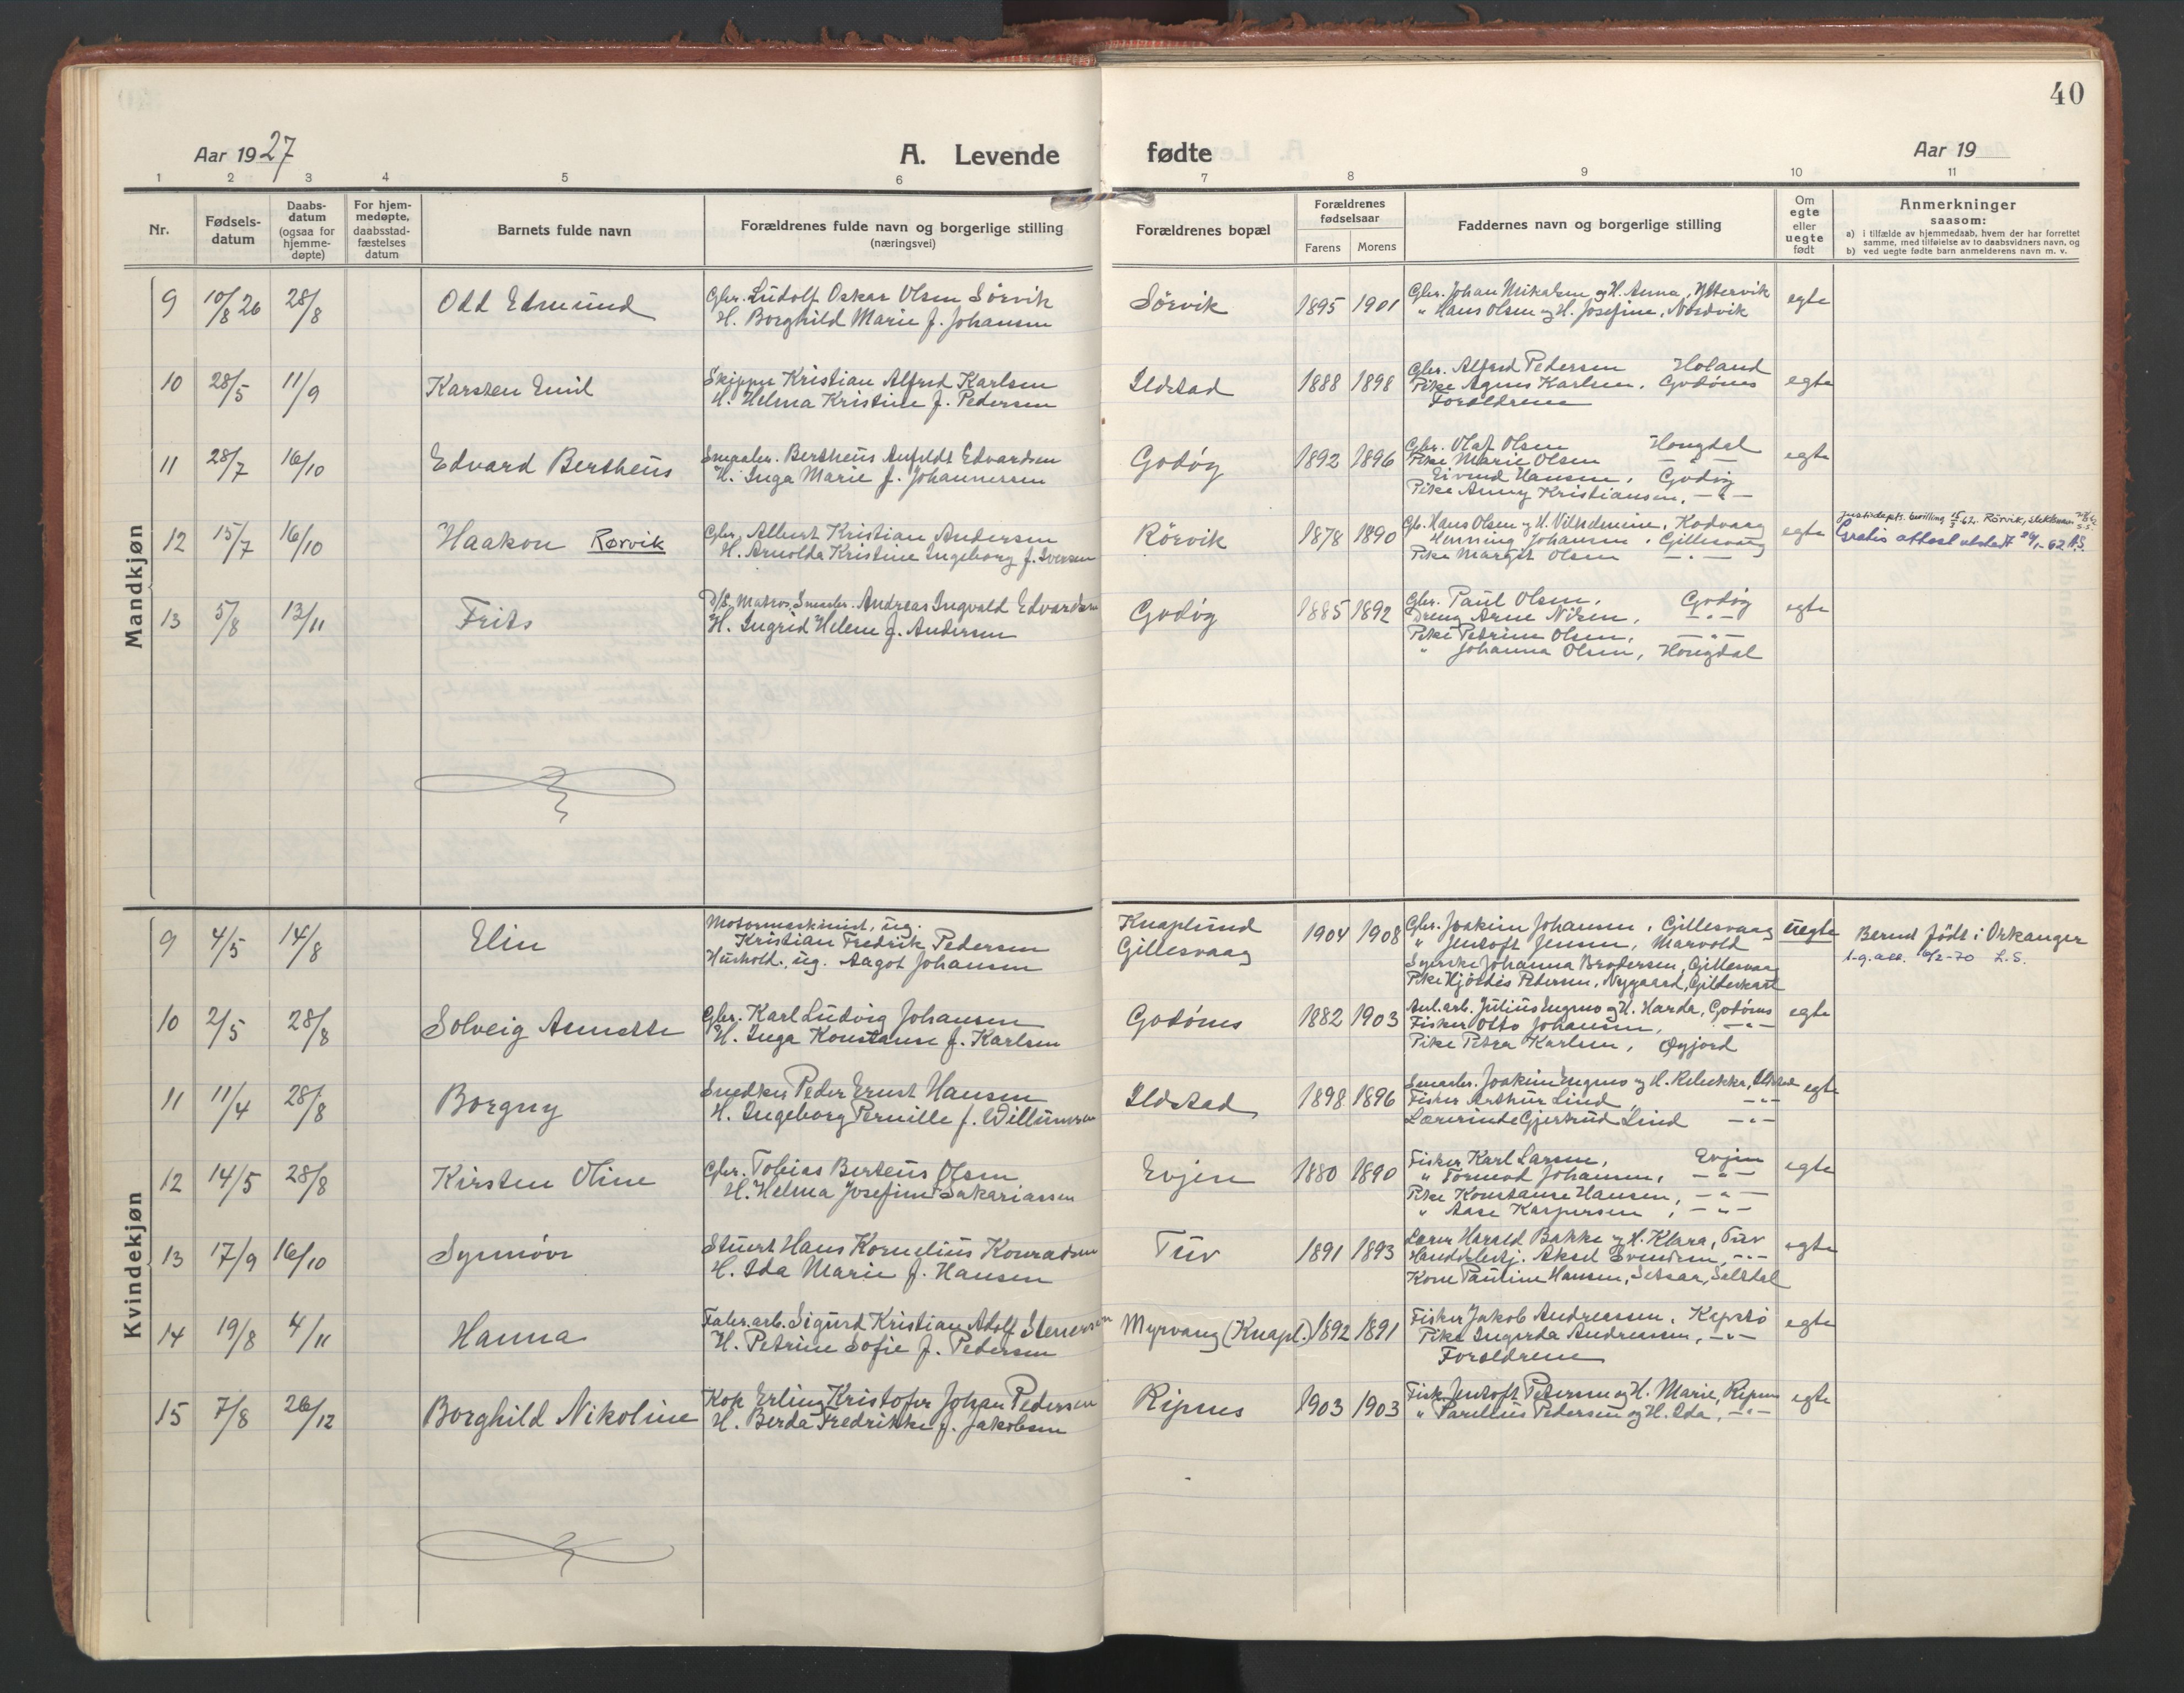 40
Aar 1927
A. Levende fødte
Aar 19
1 2 3 4 5 6 7 8 9 10 11
Nr.
Fødsels-datum
Daabs-datum (ogsaa for hjemme-døpte)
For hjem-medøpte, daabsstad-fæstelses datum
Barnets fulde navn
Forældrenes fulde navn og borgerlige stilling (næringsvei)
Forældrenes bopæl
Forældrenes fødselsaar
Farens Morens
Faddernes navn og borgerlige stilling
Om egte eller uegte født
Anmerkninger saasom:
a) i tilfælde av hjemmedaab, hvem der har forrettet samme, med tilføielse av to daabsvidners navn, og
b) ved uegte fødte barn anmelderens navn m. v.
Mandkjøn
9 10/8 26 28/8 Odd Edmund Gbr. Ludolf Oskar Olsen Sørvik Sørvik 1895 1901 Gbr. Johan Mikalsen og H. Anna, Yttervik egte
H. Borghild Marie f. Johansen " Hans Olsen og H. Josefine, Nordvik
10 28/5 11/9 Karsten Emil Skipper Kristian Alfred Karlsen Ildstad 1888 1898 Gbr. Alfred Pedersen Holand egte
H. Helma Kristine f. Pedersen Pike Agnes Karlsen, Godønes
Forældrene
11 28/7 16/10 Edvard Bertheus Smaabr. Bertheus Anfeldt Edvardsen Godøy 1892 1896 Gbr. Olaf Olsen Hongdal egte
H. Inga Marie f. Johannessen Pike Marie Olsen — " —
Eivind Hansen, Godøy
Pike Anny Kristiansen, — " —
12 15/7 16/10 Haakon Rørvik Gbr. Albert Kristian Andersen Rörvik 1878 1890 Gb. Hans Olsen og H. Vilhelmine, Kodvaag egte
H. Arnolda Kristine Ingeborg f. Iversen Henning Johansen, Gillesvaag
Pike Margit Olsen — " —
Justisdepts. bevilling 15/3-62. Rörvik, slektsnavn
Gratis attest utstedt 26/1-62
13 5/8 13/11 Frits Matros, Smaabr. Andreas Ingvald Edvardsen Godøy 1885 1892 Gbr. Paul Olsen, Godøy egte
H. Ingrid Helene f. Andersen Dreng Arne Nilsen, — " —
Pike Petrine Olsen, — " —
" Johanna Olsen, Hongdal
Kvindekjøn
9 4/5 14/8 Elin Motormaskinist, ug. Knaplund 1904 1908 Gbr. Joakim Johansen, Gillesvaag uegte
Kristian Fredrik Pedersen Gillesvaag " Jentoft Jensen, Marvold
Hushold., ug. Aagot Johansen Syerske Johanna Brodersen, Gillesvaag
Pike Hjördis Pedersen, Nygaard, Gildeskaal
Barnet født i Orkanger
6/2-70 L.S.
10 2/5 28/8 Solveig Annette Gbr. Karl Ludvig Johansen Godønes 1882 1903 Anl.arb. Julius Ingmo og H. Harda, Godønes egte
H. Inga Konstanse f. Karlsen Fisker Otto Johansen, — " —
Pike Petra Karlsen, Øyjord
11 11/4 28/8 Borgny Snedker Peder Ernst Hansen Ildstad 1898 1896 Smaabr. Joakim Ingmo og H. Rebekka, Ildstad egte
H. Ingeborg Pernille f. Willumsen Fisker Arthur Lind, — " —
Lærerinde Gjertrud Lind — " —
12 14/5 28/8 Kirsten Oline Gbr. Tobias Berteus Olsen Evjen 1880 1890 Fisker Karl Larsen, Evjen egte
H. Helma Josefine Sakariassen " Tormod Johansen, — " —
Pike Konstanse Hansen, — " —
" Aase Kaspersen, — " —
13 17/9 16/10 Synnøve Stuert Hans Kornelius Konradsen Tuv 1891 1893 Lærer Harald Bakke og H. Klara, Tuv egte
H. Ida Marie f. Hansen Handelsbetj. Aksel Svendsen, — " —
Kone Pauline Hansen, Setsaa, Saltdal
14 19/8 4/11 Hanna Fabr.arb. Sigurd Kristian Adolf Stenersen Myrvang (Knapl.) 1892 1891 Fisker Jakob Andreassen, Kjøpstø egte
H. Petrine Sofie f. Pedersen Pike Ingerda Andreassen, — " —
Forældrene
15 7/8 26/12 Borghild Nikoline Kok Erling Kristofer Johan Pedersen Ripnes 1903 1903 Fisk. Jentoft Petersen og H. Marie, Ripnes egte
H. Berda Fredrikke f. Jakobsen " Parelius Pedersen og H. Ida, — " —